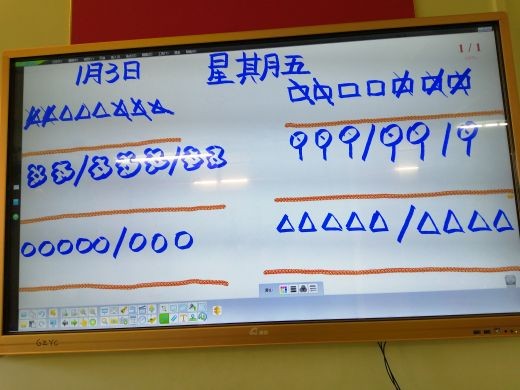 1月3日 星期五
1/1
GZYC